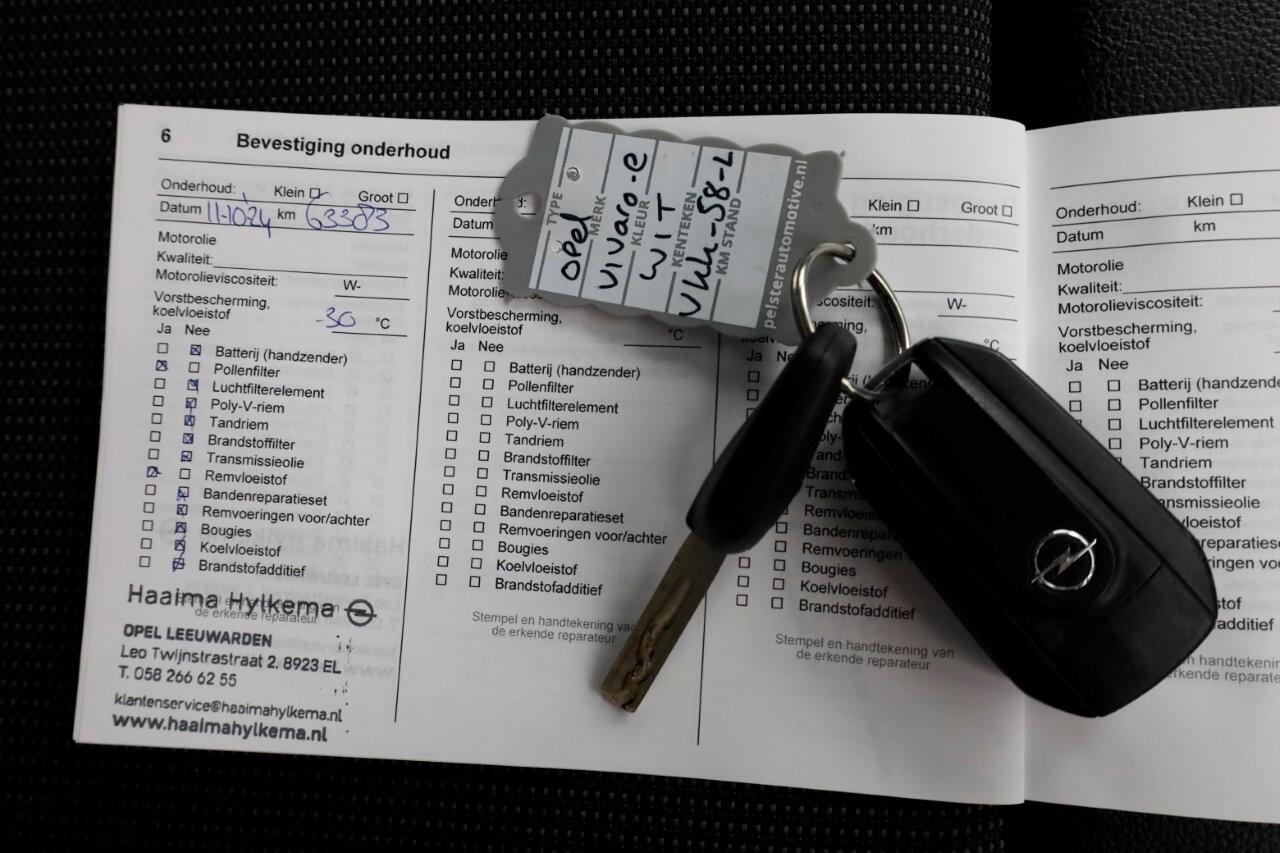 6 Bevestiging onderhoud
Onderhoud: Klein Groot
Datum 11-10-24 km 63383
Motorolie
Kwaliteit:
Motorolieviscositeit: W-
Vorstbescherming,
koelvloeistof -30 °C
Ja Nee
Batterij (handzender)
Pollenfilter
Luchtfilterelement
Poly-V-riem
Tandriem
Brandstoffilter
Transmissieolie
Remvloeistof
Bandenreparatieset
Remvoeringen voor/achter
Bougies
Koelvloeistof
Brandstofadditief
Haaima Hylkema
de erkende reparateur
OPEL LEEUWARDEN
Leo Twijnstrastraat 2, 8923 EL
T. 058 266 62 55
klantenservice@haaimahylkema.nl
www.haaimahylkema.nl
Datum
Motorolie
Kwaliteit:
Vorstbescherming,
koelvloeistof °C
Ja Nee
Batterij (handzender)
Pollenfilter
Luchtfilterelement
Poly-V-riem
Tandriem
Brandstoffilter
Transmissieolie
Remvloeistof
Bandenreparatieset
Remvoeringen voor/achter
Bougies
Koelvloeistof
Brandstofadditief
Stempel en handtekening van
de erkende reparateur
TYPE
Opel
MERK
Vivaro-e
KLEUR
WIT
KENTEKEN
VKK-58-L
KM STAND
pelsterautomotive.nl
Klein Groot
km
W-
°C
Ja
Bougies
Koelvloeistof
Brandstofadditief
Stempel en handtekening van
de erkende reparateur
Onderhoud: Klein
Datum km
Motorolie
Kwaliteit:
Motorolieviscositeit:
Vorstbescherming,
koelvloeistof
Ja Nee
Batterij (handzende
Pollenfilter
Luchtfilterelement
Poly-V-riem
Tandriem
Brandstoffilter